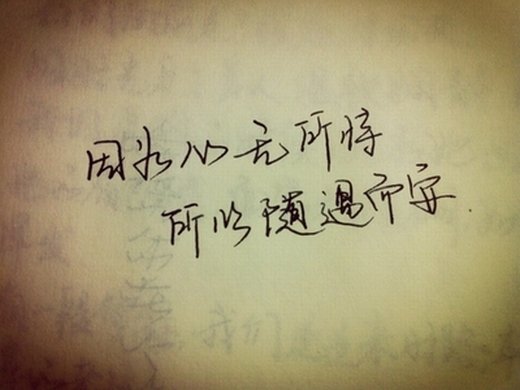 因为心无所恃
所以随遇而安.